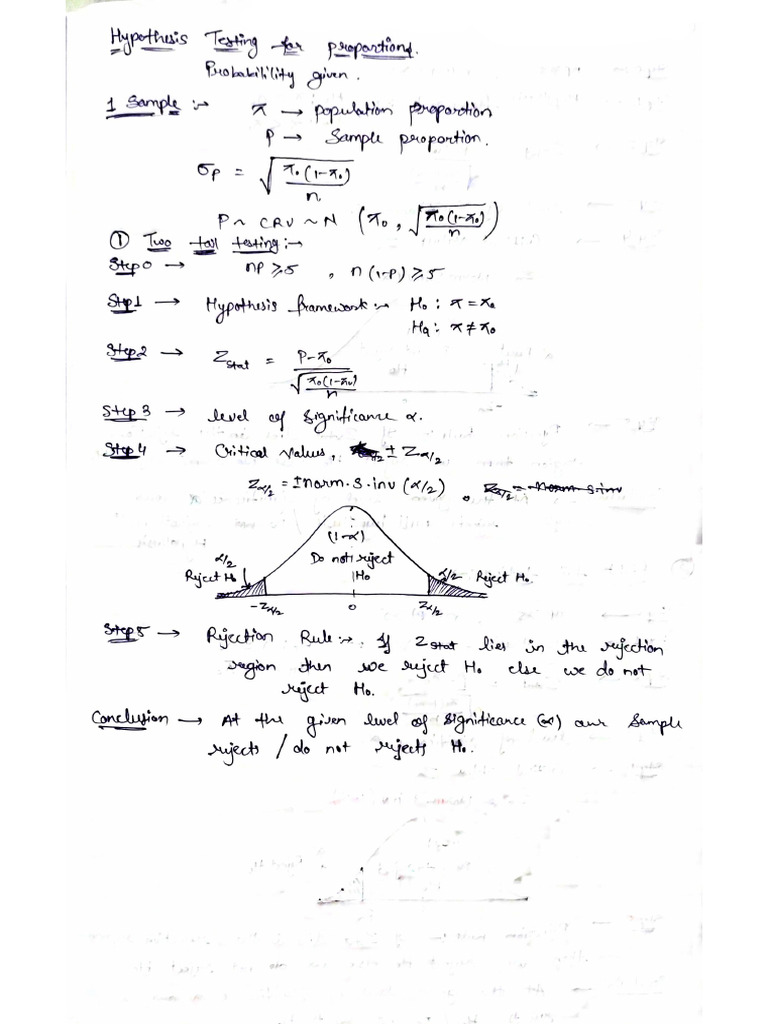 Hypothesis Testing for proportions.
Probability given.
1 Sample :→ π → population proportion
P → Sample proportion.
σp = √(π₀(1-π₀)/n)
P ~ CRV ~ N (π₀, √(π₀(1-π₀)/n))
① Two tail testing :→
Step 0 → np ≥ 5 , n(1-p) ≥ 5
Step 1 → Hypothesis framework :→ H₀ : π = π₀
Ha : π ≠ π₀
Step 2 → Zstat = (P-π₀)/√(π₀(1-π₀)/n)
Step 3 → level of Significance α.
Step 4 → Critical Values, ± Zα/2
Zα/2 = ± norm.s.inv (α/2) , Zα/2 = norm s.inv
(1-α)
α/2 Do not reject
Reject H₀ H₀ α/2 Reject H₀.
-Zα/2 0 Zα/2
Step 5 → Rejection Rule :→ If Zstat lies in the rejection
region then we reject H₀ else we do not
reject H₀.
Conclusion → At the given level of significance (α) our Sample
rejects / do not rejects H₀.